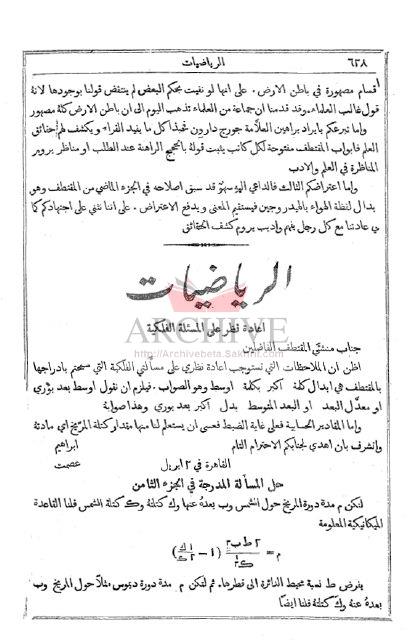 ٦٢٨
الرياضيات
اقسام مصهورة في باطن الارض. على انها لو نفيت بحكم البعض لم ينتقض قولنا بوجودها لانه
قول غالب العلماء وقد قدمنا ان جماعة من العلماء تذهب اليوم الى ان باطن الارض كتلة مصهور
واما تبرعكم بايراد براهين العلامة جورج دارون فحبذا كل ما يفيد القراء ويكشف لهم حقائق
العلم فابواب المقتطف مفتوحة لكل كاتب يثبت قوله بالحجج الراهنة عند الطلب او مناظر يروم
المناظرة في العلم والادب
واما اعتراضكم الثالث فالداعي اليه سهو قد سبق اصلاحه في الجزء الماضي من المقتطف وهو
بدال لفظة الهواء بالهيدروجين فيستقيم المعنى ويدفع الاعتراض. على اننا نثني على اجتهادكم كما
ي عادتنا مع كل رجل فهم واديب يروم كشف الحقائق
الرياضيات
ARCHIVE
اعادة نظر على المسئلة الفلكية
http://Archivebeta.Sakhrit.com
جناب منشئي المقتطف الفاضلين
اظن ان الملاحظات التي تستوجب اعادة نظري على مسألتي الفلكية التي سمحتم بادراجها
بالمقتطف هي ابدال كلمة اكبر بكلمة اوسط وهو الصواب. فيلزم ان نقول اوسط بعد بؤري
او معدل البعد او البعد المتوسط بدل اكبر بعد بوري وهذا صوابه
واما المقادير الحسابية فعلى غاية الضبط فعسى ان يستعلم لنا منها مقدار كتلة المريخ اي مادته
وانشرف بان اهدي لجنابكم الاحترام التام
ابراهيم
القاهرة في ٢ ابريل
عصمت
حل المسألة المدرجة في الجزء الثامن
لتكن م مدة دورة المريخ حول الشمس وب بعده عنها وك كتلته وك كتلة الشمس فلنا القاعدة
الميكانيكية المعلومة
يفرض ط نسبة محيط الدائرة الى قطرها. ثم لتكن م مدة دورة ديموس مثلا حول المريخ وب
بعده عنه وك كتلته فلنا ايضا